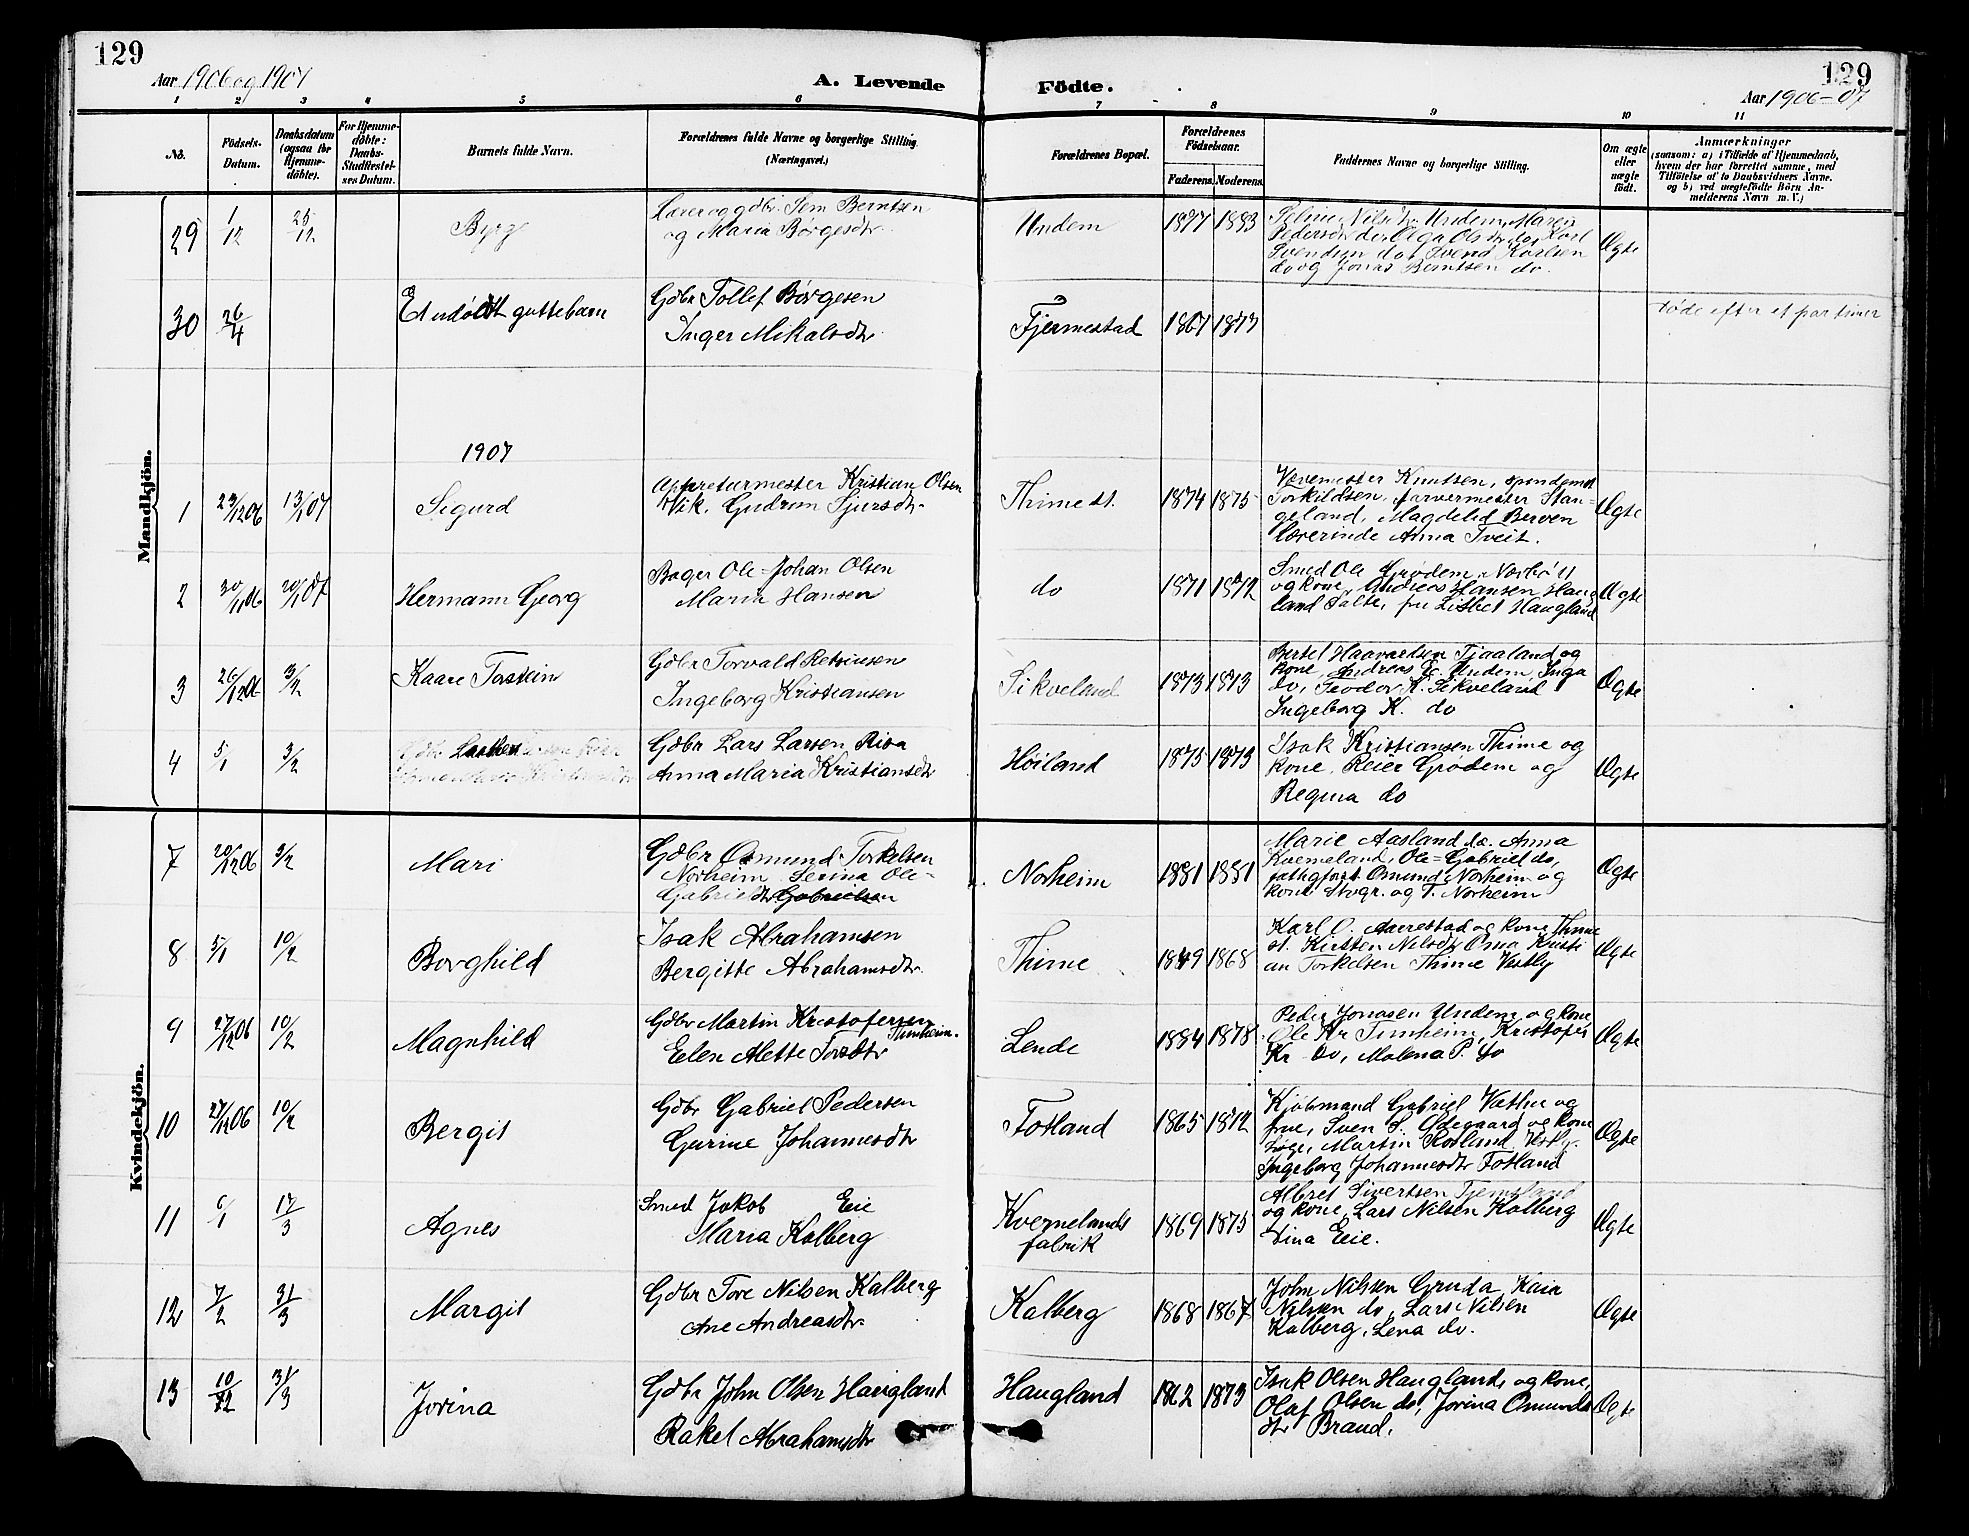 129
Aar 1906 og 1907
A. Levende
Födte.
129
Aar 1906-07
1 2 3 4 5 6 7 8 9 10 11
No.
Födsels-Datum.
Daabsdatum (ogsaa for Hjemme-döbte).
For Hjemme-döbte: Daabs-Stadfæstel-ses Datum.
Barnets fulde Navn.
Forældrenes fulde Navne og borgerlige Stilling. (Næringsvei.)
Forældrenes Bopæl.
Forældrenes Födselsaar.
Faderens. Moderens.
Faddernes Navne og borgerlige Stilling.
Om ægte eller uægte födt.
Anmærkninger
(saasom: a) i Tilfælde af Hjemmedaab,
hvem der har forrettet samme, med
Tilföielse af to Daabsvidners Navne.
og b) ved uægtefödte Börn An-
melderens Navn m. V.)
Mandkjön.
29 1/12 25/12
Lærer og gdbr. Sem Berntsen
og Maria Børgesdtr.
Undem 1877 1883
Nilsdtr Undem, Maren
Pedersdtr do, Olga Olsdtr do, Karl
Svendsen do, Svend Karlsen
do og Jonas Berntsen do.
Ægte
30 26/4
Et udøbt guttebarn
Gdbr Tollef Børgesen
Inger Mikalsdtr
Tjermestad 1867 1873
døde efter et par timer
1907
1 29/12 06 13/1 07
Sigurd
Appreturmester Kristian Olsen
Vik, Gudrun Sjursdtr
Thime st. 1874 1875
Vævemester Knutsen, spindemst
Torkildsen, farvermester Stan-
geland, Magdeld Berven
lærerinde Anna Tveit.
Ægte
2 30/11 06 20/1 07
Hermann Georg
Bager Ole-Johan Olsen
Maria Hansen
do 1871 1872
Smed Ole Grødem, Norbø
og kone, Andreas Hansen Haug
land Salte, fru Lisbet Haugland
Ægte
3 26/12 06 3/2
Kaare Torstein
Gdbr Torvald Retsiusen
Ingeborg Kristiansen
Sikveland 1873 1873
Bertel Haavardsen Tjaaland og
kone, Andreas E. Undem, Inga
do, Teodor K. Sikveland
Ingeborg K. do
Ægte
4 5/1 3/2
Gdbr Lars Larsen Risa
Anna Maria Kristiansdtr
Høiland 1875 1873
Isak Kristiansen Thime og
kone, Reier Grødem og
Regina do
Ægte
Kvindekjön.
7 20/12 06 3/2
Mari
Gdbr Osmund Torkelsen
Norheim Serina Ole-
Gabrielsdtr Gabrielsen
Norheim 1881 1881
Marie Aasland do. Anna
Kverneland, Ole-Gabriel do,
fattigforst. Osmund Norheim og
kone Stvgr. og T. Norheim
Ægte
8 5/1 10/2
Borghild
Isak Abrahamsen
Bergitte Abrahamsdtr.
Thime 1849 1868
Karl O. Aarrestad og kone Thime
st. Kirsten Nilsdtr Oma Kristi
an Torkelsen Thime Vestly
Ægte
9 27/12 06 10/2
Magnhild
Gdbr Martin Kristofersen
Timheim.
Elen Alette Torsdtr
Lende 1884 1878
Peder Jonasen Undem og kone
Ole Kr Timheim, Kristofer
Kr do, Malena P. do
Ægte
10 27/12 06 10/2
Bergit
Gdbr Gabriel Pedersen
Gurine Johannesdtr
Fotland 1865 1872
Kjøbmand Gabriel Væthe og
frue, Sven S. Ødegaard og kone
Søge, Martin Rosland Vestly.
Ingeborg Johannesdtr Fotland
Ægte
11 6/1 17/3
Agnes
Smed Jakob Eie
Maria Kalberg
Kvernelands
fabrik
1869 1875
Albret Sivertsen Tjemsland
og kone, Lars Nilsen Kalberg
Lina Eie.
Ægte
12 7/2 31/3
Margit
Gdbr Tore Nilsen Kalberg
Ane Andreasdtr
Kalberg 1868 1867
John Nilsen Gruda, Kaia
Nilsen do, Lars Nilsen
Kalberg, Lena do.
Ægte
13 10/12 31/3
Jorina
Gdbr John Olsen Haugland
Rakel Abrahamsdtr
Haugland 1862 1873
Isak Olsen Haugland og kone,
Olaf Olsen do, Jorina Osmunds
dtr Braud.
Ægte